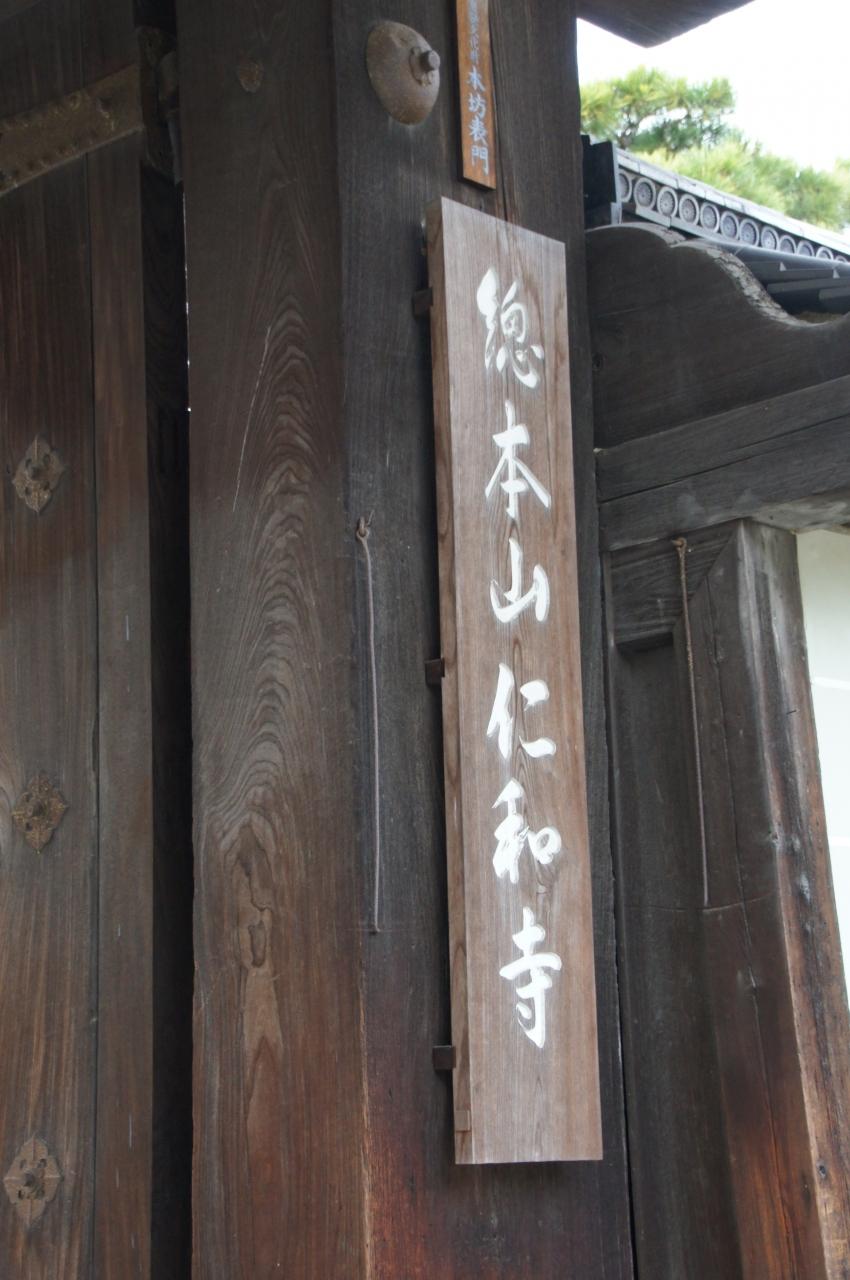 本坊表門
總本山仁和寺